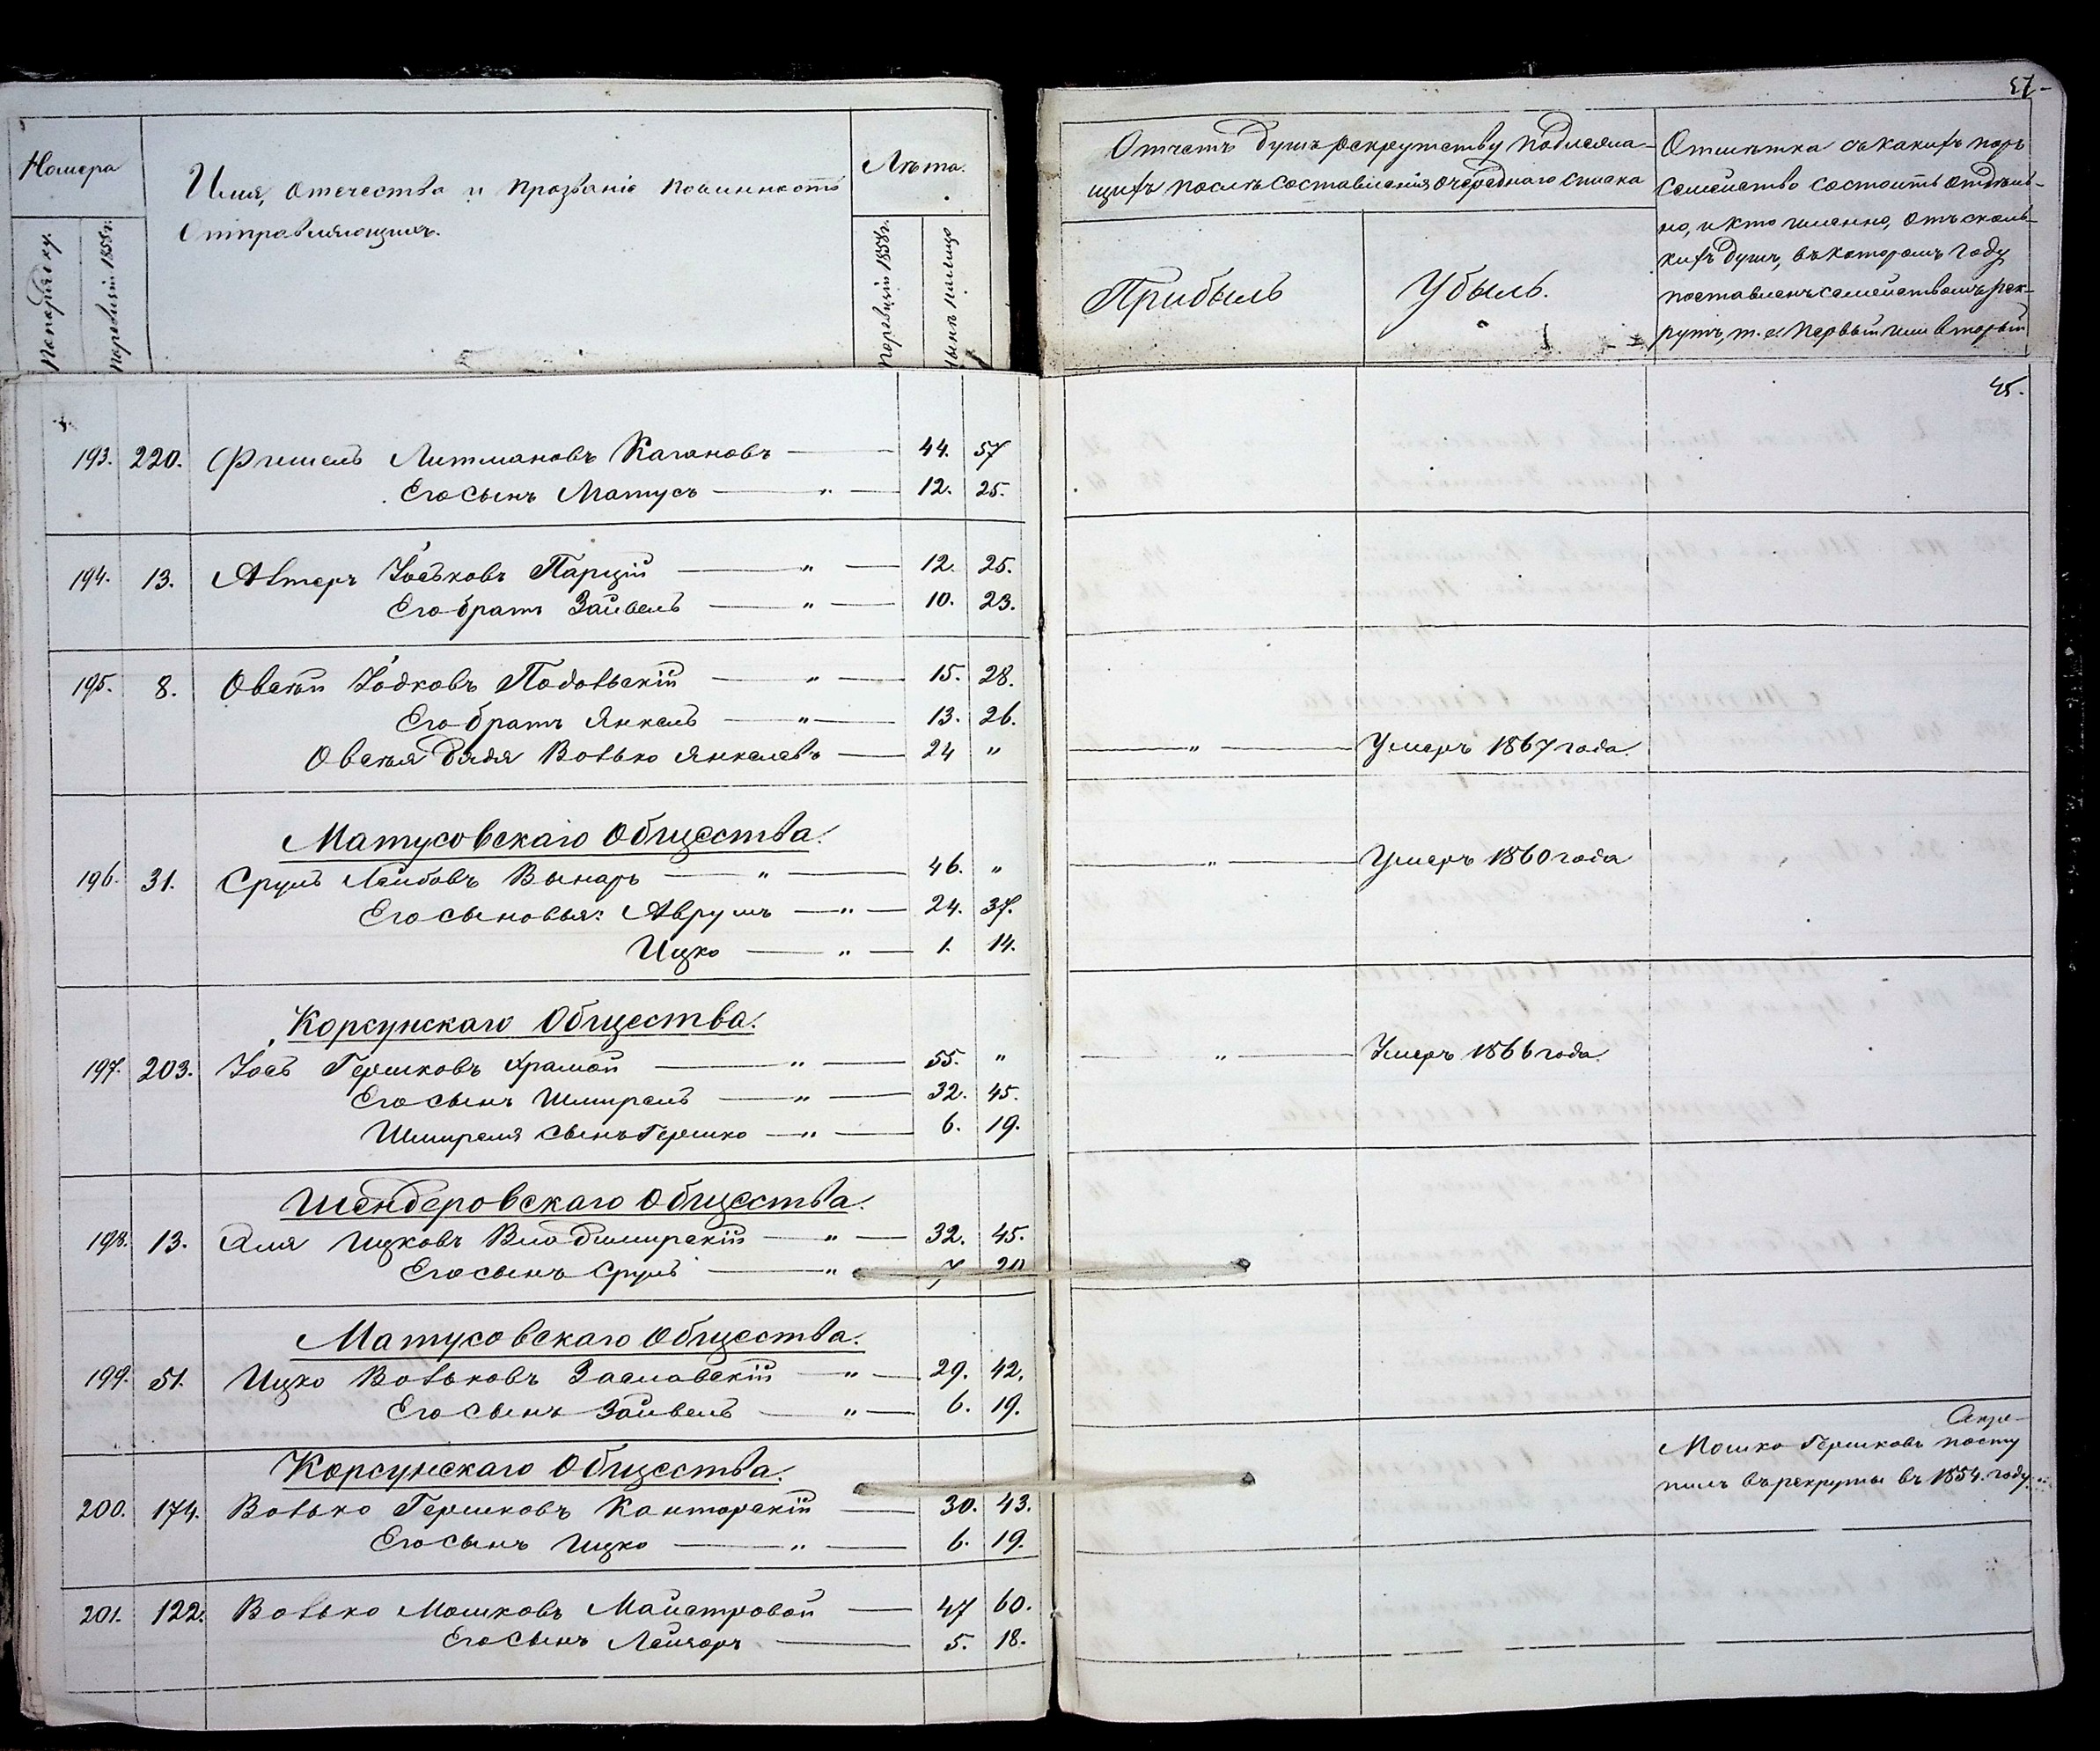 57
Номера
Имя, отечества и прозваніе повинность
отправляющихъ.
Лѣта.
По порядку.
По ревизіи 1858г.
По ревизіи 1858г.
Нынѣ
Отчетъ душъ рекрутству подлежа-
щихъ послѣ составленія очереднаго списка
Прибыль
Убыль.
Отмѣтка съ какихъ поръ
семейство состоитъ отдѣль-
но, и кто именно, отъ сколь-
кихъ душъ, въ которомъ году
поставленъ семействомъ рек-
рутъ, т. е. первый или вторый
45.
193. 220. Фишель Литмановъ Кагановъ 44. 57
Его сынъ Матусъ " 12. 25.
194. 13. Алтеръ Іоськовъ Парцій " 12. 25.
Его братъ Зайвель " 10. 23.
195. 8. Овсѣй Іодковъ Подольскій " 15. 28.
Его братъ Янкель " 13. 26.
Овсѣя дядя Волько Янкелевъ 24 " " Умеръ 1867 года.
Матусовскаго Общества.
196. 31. Сруль Лейбовъ Винаръ " 46. " " Умеръ 1860 года
Его сыновья: Аврумъ " 24. 37.
Ицко " 1. 14.
Корсунскаго Общества.
197. 203. Іось Гершковъ Храмой " 55. " " Умеръ 1866 года.
Его сынъ Шмирель " 32. 45.
Шмиреля сынъ Гершко " 6. 19.
Шендеровскаго Общества.
198. 13. Эля Ицковъ Владимирскій " 32. 45.
Его сынъ Сруль " 7 20
Матусовскаго Общества.
199. 51. Ицко Вольковъ Заславскій " 29. 42.
Его сынъ Зайвель " 6. 19.
Корсунскаго Общества.
Мошко Гершковъ посту
пилъ въ рекруты въ 1854. году.
200. 174. Волько Гершковъ Канторскій 30. 43.
Его сынъ Ицко " 6. 19.
201. 122. Волько Мошковъ Майстровой 47 60.
Его сынъ Лейзоръ 5. 18.